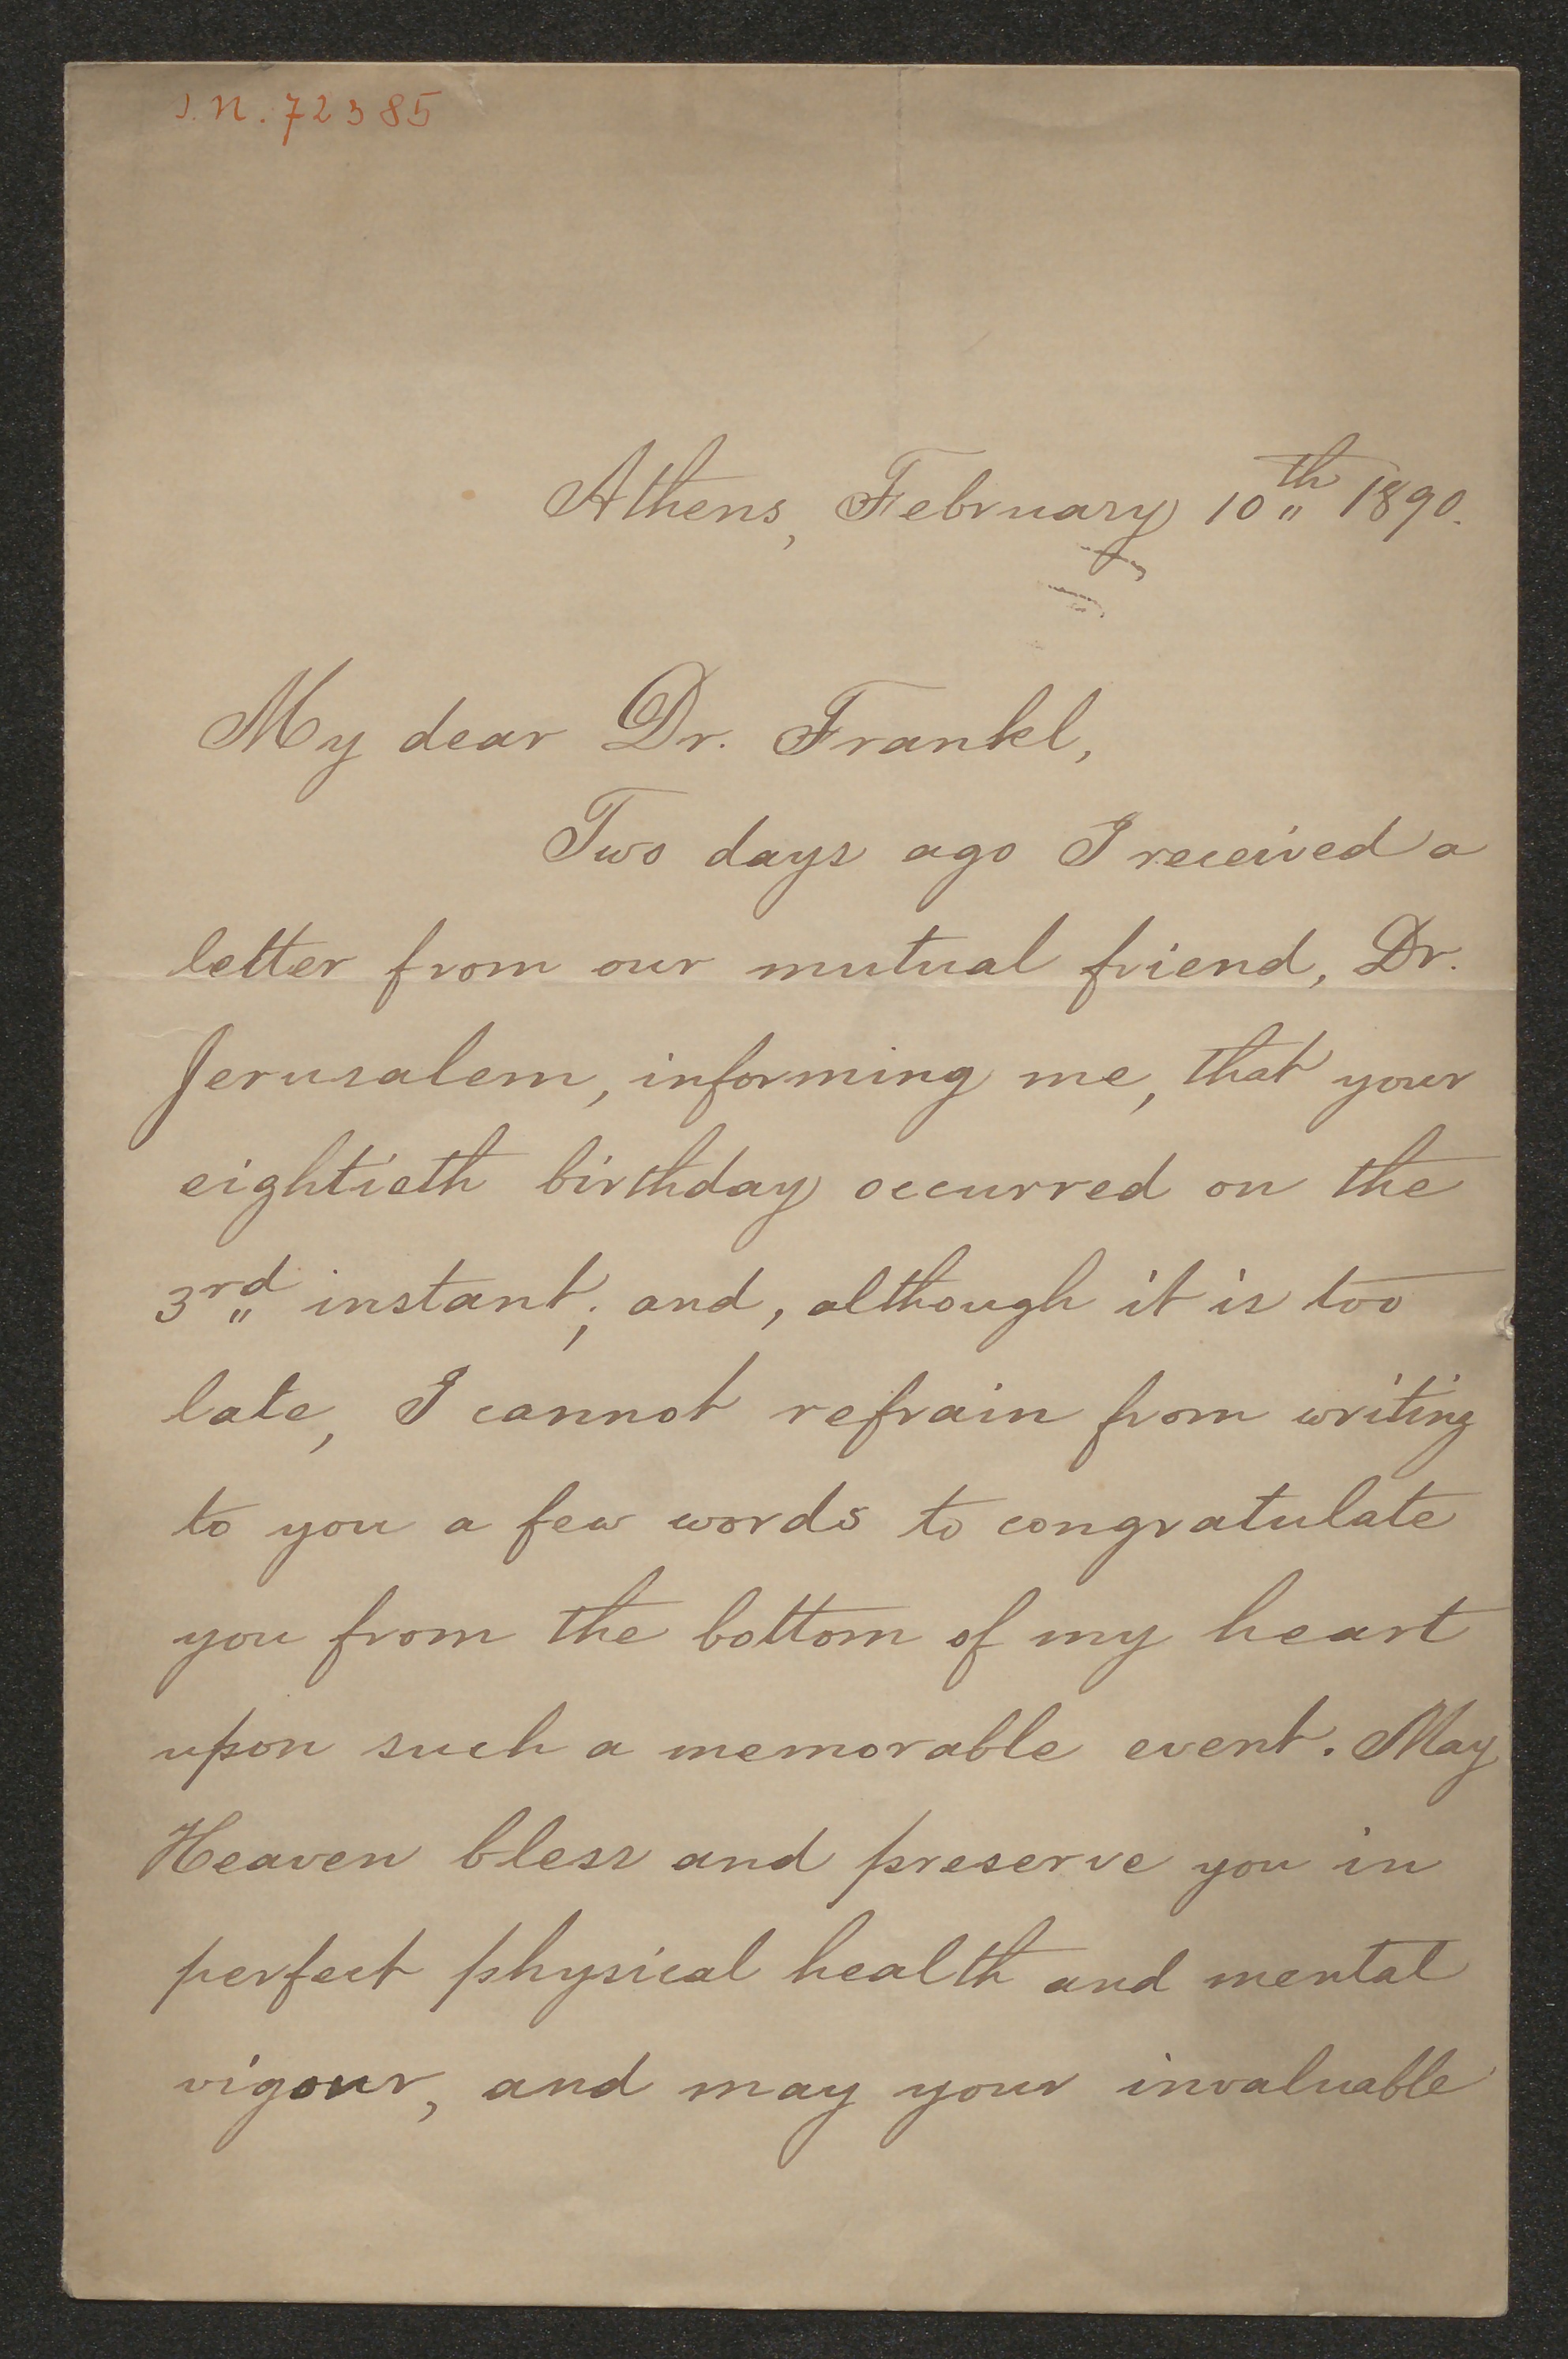 J.N. 72385
Athens, February 10th 1890.
My dear Dr. Frankl,
Two days ago I received a
letter from our mutual friend, Dr.
Jerusalem, informing me, that your
eightieth birthday occurred on the
3rd instant; and, although it is too
late, I cannot refrain from writing
to you a few words to congratulate
you from the bottom of my heart
upon such a memorable event. May
Heaven bless and preserve you in
perfect physical health and mental
vigour, and may your invaluable